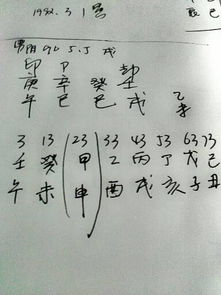 1992.3.1
辰
男阴 90 5.5 戌
印 卩 劫
庚 辛 癸 壬
午 巳 巳 戌
乙未
3 13 23 33 43 53 63 73
壬 癸 甲 乙 丙 丁 戊 己
午 未 申 酉 戌 亥 子 丑